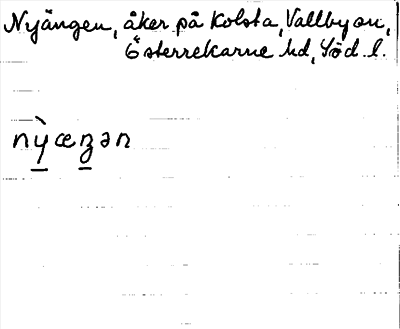 Nyängen, åker på Kolsta, Vallby sn,
Österrekarne hd, Söd. l.
nỳ̱æŋ̱ən